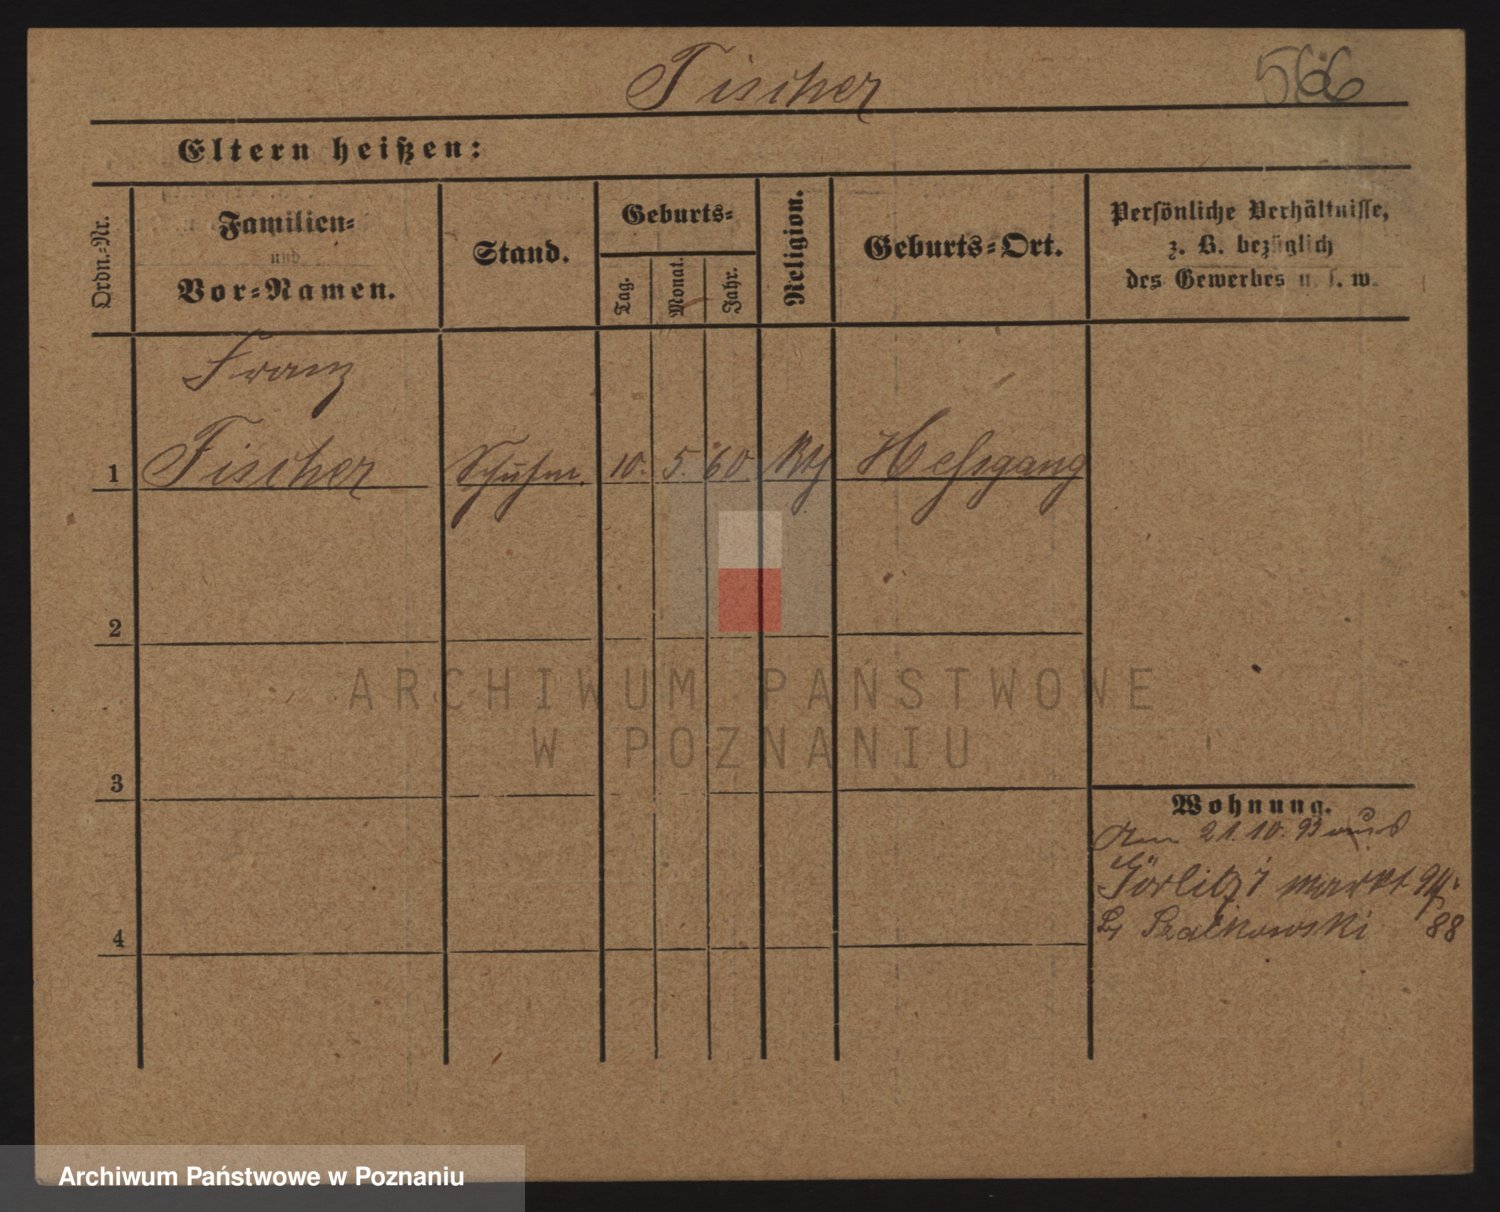 Fischer 566
Eltern heißen:
Ordn.-Nr.
Familien-
und
Vor-Namen.
Stand.
Geburts-
Tag.
Monat.
Jahr.
Religion.
Geburts-Ort.
Persönliche Verhältnisse,
z. B. bezüglich
des Gewerbes u. s. w.
Franz
1 Fischer Schuhm. 10. 5. 60 Kth
2
3
4
Wohnung.
Am 21. 10. 93 aus
Görlitz markt 94.
88
ARCHIWUM PAŃSTWOWE
W POZNANIU
Archiwum Państwowe w Poznaniu